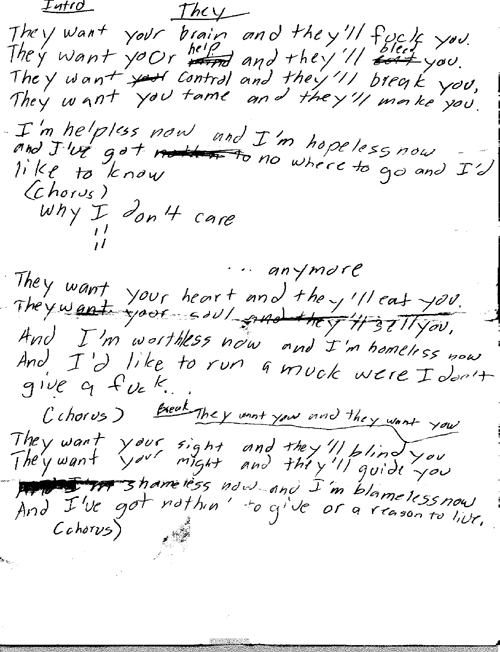 Intro They
They want your brain and they'll fuck you.
They want your help and they'll bleed you.
They want control and they'll break you,
They want you tame and they'll make you.
I'm helpless now and I'm hopeless now
and I've got no where to go and I'd
like to know
(chorus)
why I don't care
"
"
... anymore
They want your heart and they'll eat you.
They want your soul and they'll sell you,
And I'm worthless now and I'm homeless now
And I'd like to run a muck were I don't
give a fuck..
(chorus) Break They want you and they want you
They want your sight and they'll blind you
They want your might and they'll guide you
And I'm shameless now and I'm blameless now
And I've got nothin' to give or a reason to live.
(chorus)